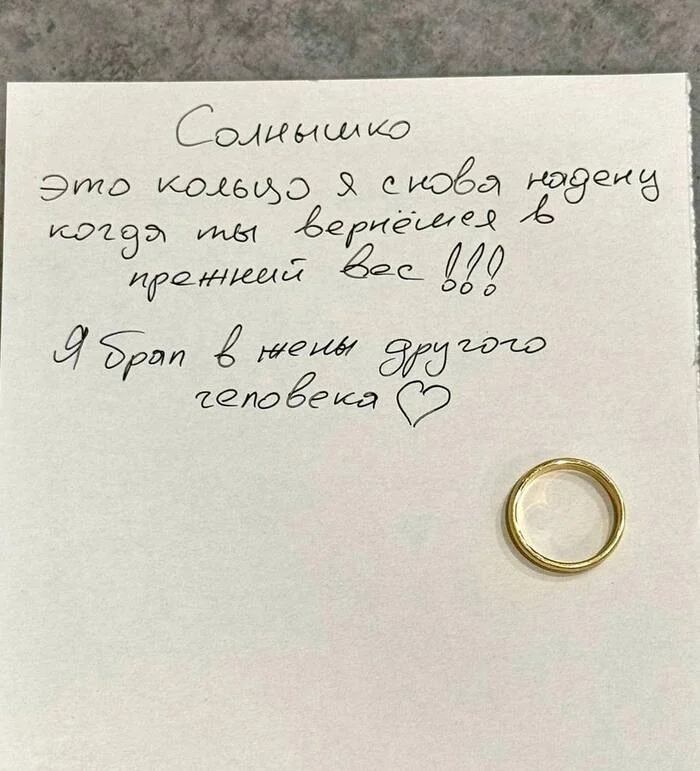 Солнышко
это кольцо я снова надену
когда ты вернёшся в
прежний вес!!!
Я брал в жены другого
человека ♡